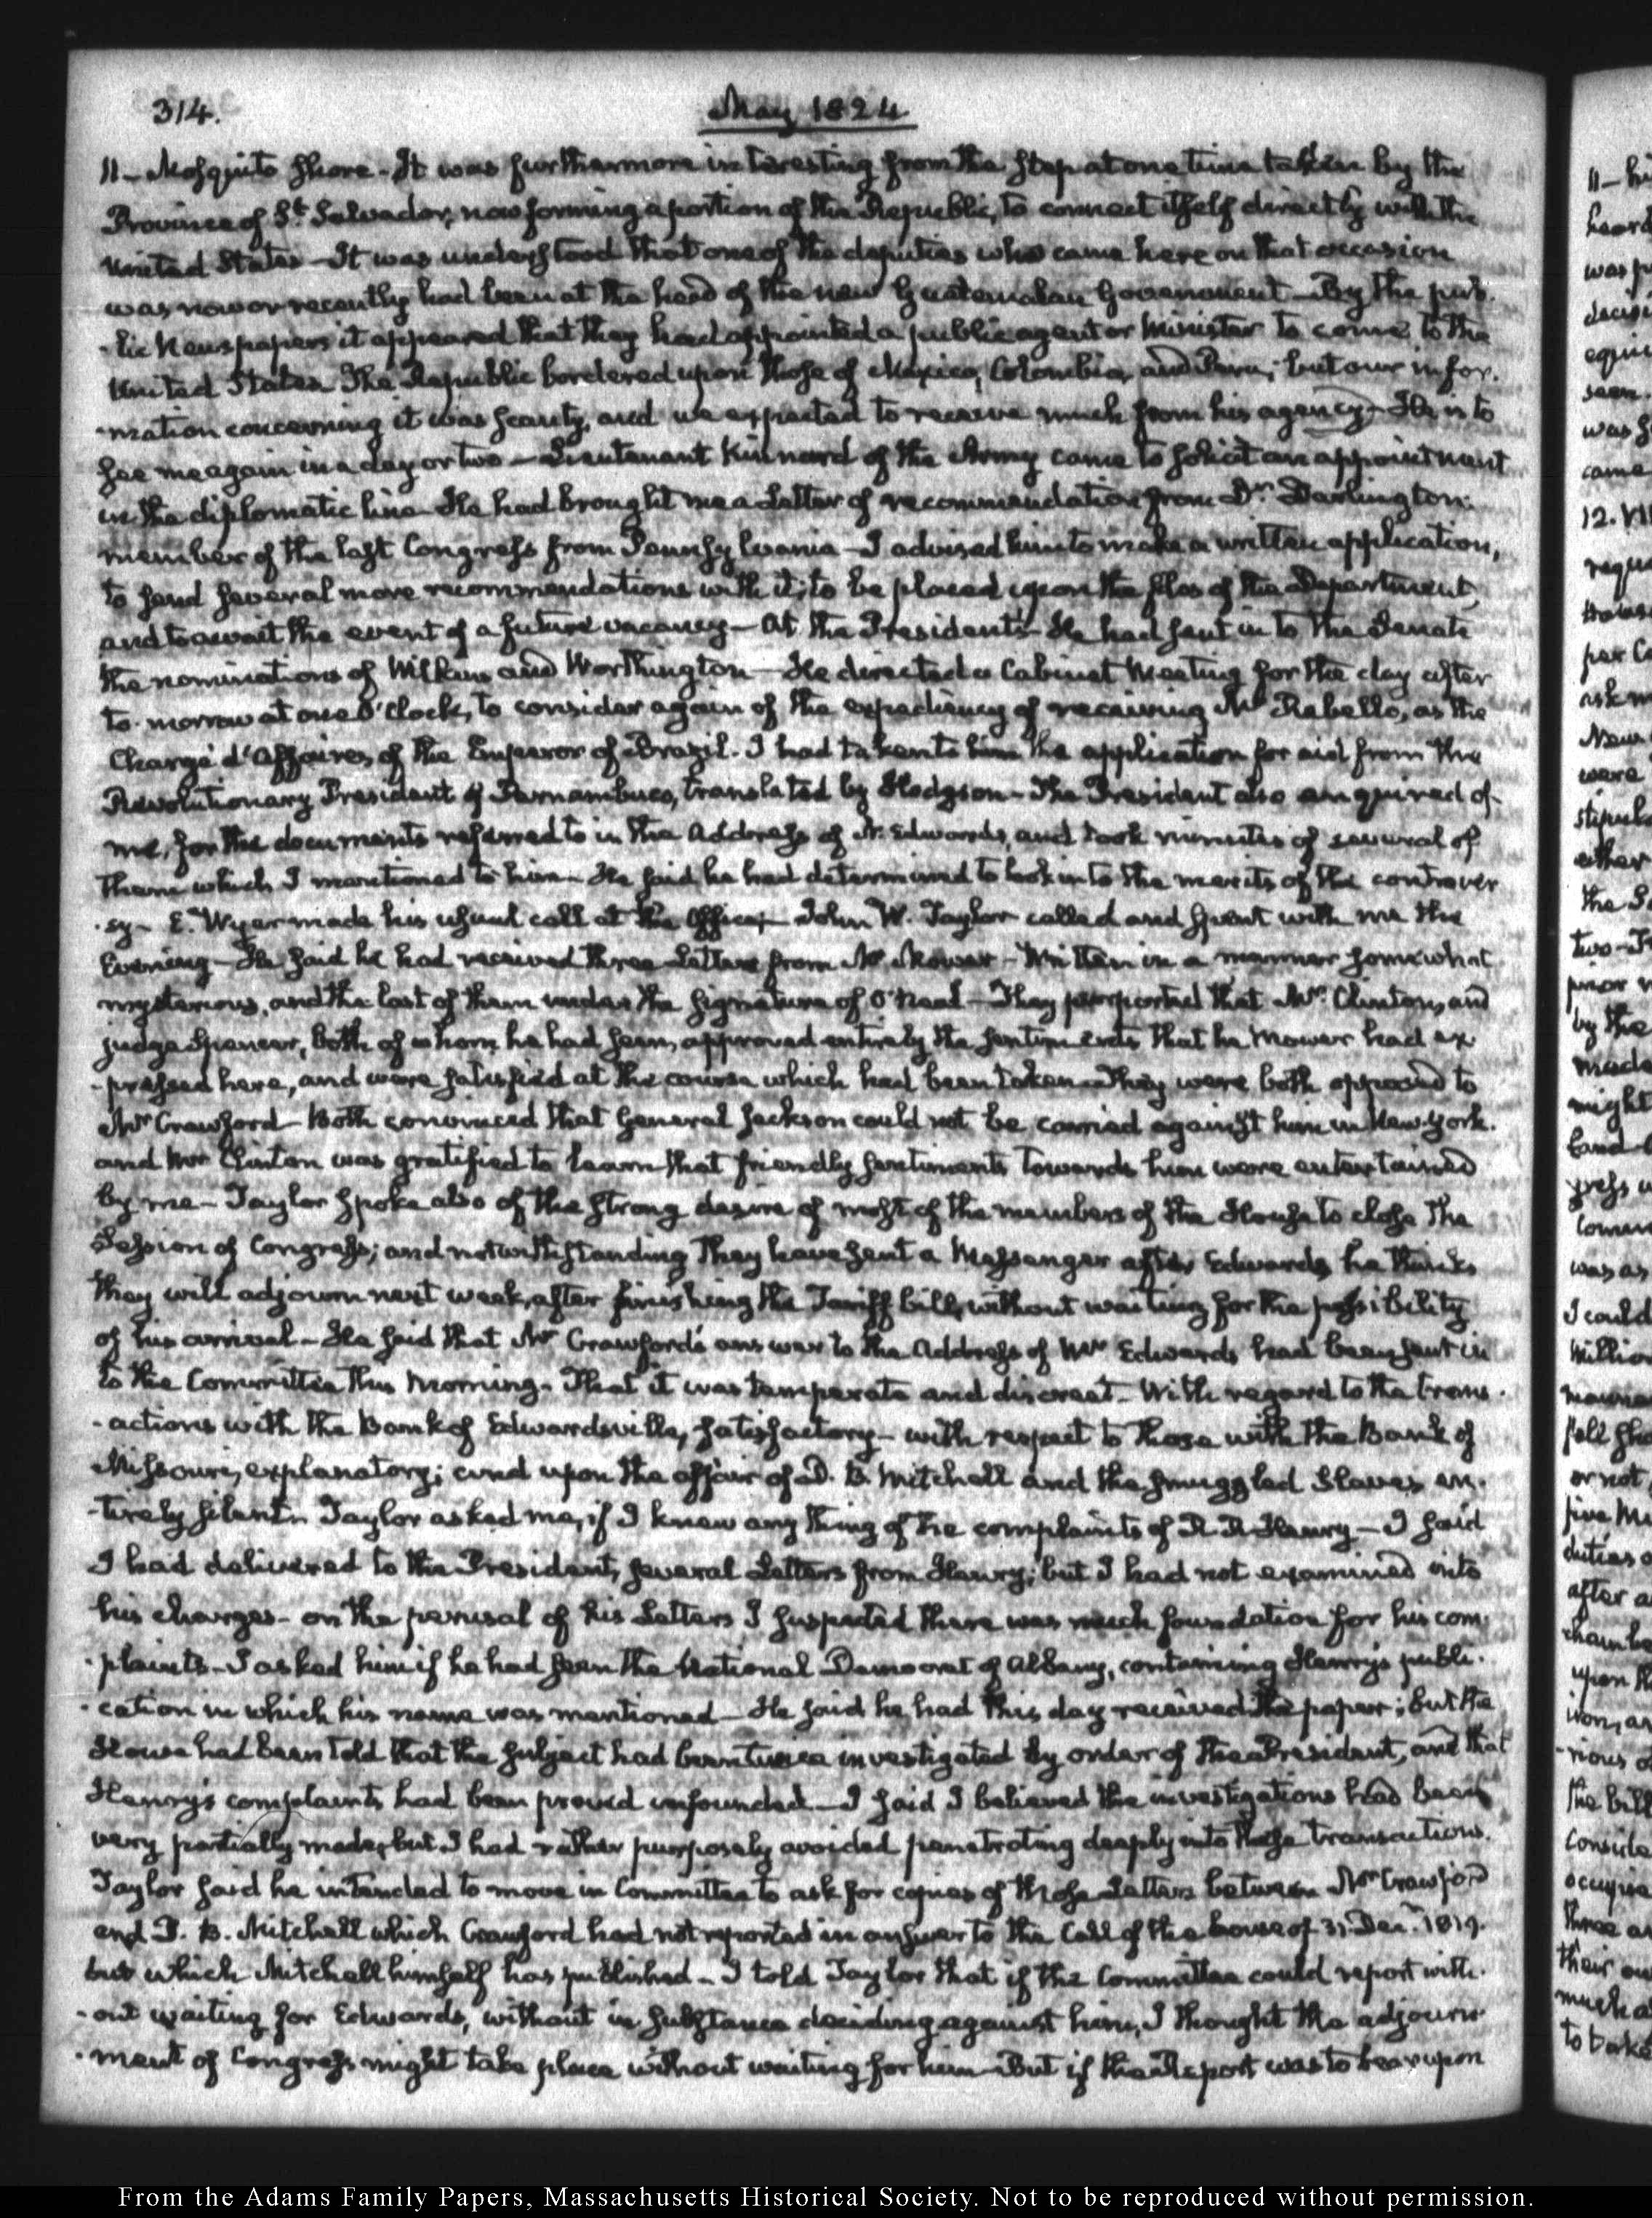 314.
May 1824
11 - Mosquito Shore - It was furthermore interesting from the step at one time taken by the
Province of St. Salvador, now forming a portion of the Republic, to connect itself directly with the
United States - It was understood that one of the deputies who came here on that occasion
was now or recently had been at the head of the new Guatemalan Government - By the pub.
-lic Newspapers it appeared that they had appointed a public agent or Minister to come to the
United States. The Republic bordered upon those of Mexico, Colombia, and Peru; but our infor.
-mation concerning it was scanty, and we expected to receive much from his agency - He is to
see me again in a day or two - Lieutenant Kinnard of the Army came to solicit an appointment
in the diplomatic line. He had brought me a Letter of recommendation from Dr. Darlington.
member of the last Congress from Pennsylvania - I advised him to make a written application,
to send several more recommendations with it; to be placed upon the files of the Department,
and to await the event of a future vacancy - At the President's - He had sent in to the Senate
the nominations of Wilkins and Worthington - He directed a Cabinet Meeting for the day after
to-morrow at one O'Clock, to consider again of the expediency of receiving Mr Rebello, as the
Chargé d'Affaires, of the Emperor of Brazil. I had taken to him the application for aid from the
Revolutionary President of Pernambuco, translated by Hodgson - The President also enquired of
me, for the documents referred to in the Address of N. Edwards, and took minutes of several of
them which I mentioned to him - He said he had determined to look into the merits of the controver
-sy - E. Wyer made his usual call at the Office - John W. Taylor called and spent with me the
Evening - He said he had received three Letters from Mr Mower - Written in a manner somewhat
mysterious, and the last of them under the signature of O'Neal - They purported that Mr. Clinton, and
judge Spencer, both of whom he had seen, approved entirely the sentiments that he Mower had ex
-pressed here, and were satisfied at the course which had been taken - They were both opposed to
Mr Crawford - Both convinced that General Jackson could not be carried against him in New-York.
and Mr Clinton was gratified to learn that friendly sentiments towards him were entertained
by me - Taylor spoke also of the strong desire of most of the members of the House to close the
Session of Congress; and notwithstanding they have sent a Messenger after Edwards, he thinks
they will adjourn next week, after finishing the Tariff bill, without waiting for the possibility
of his arrival - He said that Mr Crawford's answer to the Address of Mr Edwards had been sent in
to the Committee this Morning. That it was temperate and discreet - With regard to the trans.
-actions with the Bank of Edwardsville, satisfactory - with respect to those with the Bank of
Missouri, explanatory; and upon the affair of D. B. Mitchell and the smuggled Slaves en.
-tirely silent. Taylor asked me, if I knew any thing of the complaints of R. R. Henry - I said
I had delivered to the President, several Letters from Henry; but I had not examined into
his charges - on the perusal of his Letters I suspected there was much foundation for his com.
-plaints - I asked him if he had seen the National Democrat of Albany, containing Henry's publi.
-cation in which his name was mentioned - He said he had this day received the paper; but the
House had been told that the subject had been twice investigated by order of the President, and that
Henry's complaints had been proved unfounded - I said I believed the investigations had been
very partially made, but I had rather purposely avoided penetrating deeply into those transactions.
Taylor said he intended to move in Committee to ask for copies of those Letters between Mr Crawford
and D. B. Mitchell which Crawford had not reported in answer to the Call of the house of 31. Decr. 1819.
but which Mitchell himself has published - I told Taylor that if the Committee could report with.
-out waiting for Edwards, without in substance deciding against him, I thought the adjourn
-ment of Congress might take place without waiting for him - But if the Report was to bear upon
From the Adams Family Papers, Massachusetts Historical Society. Not to be reproduced without permission.